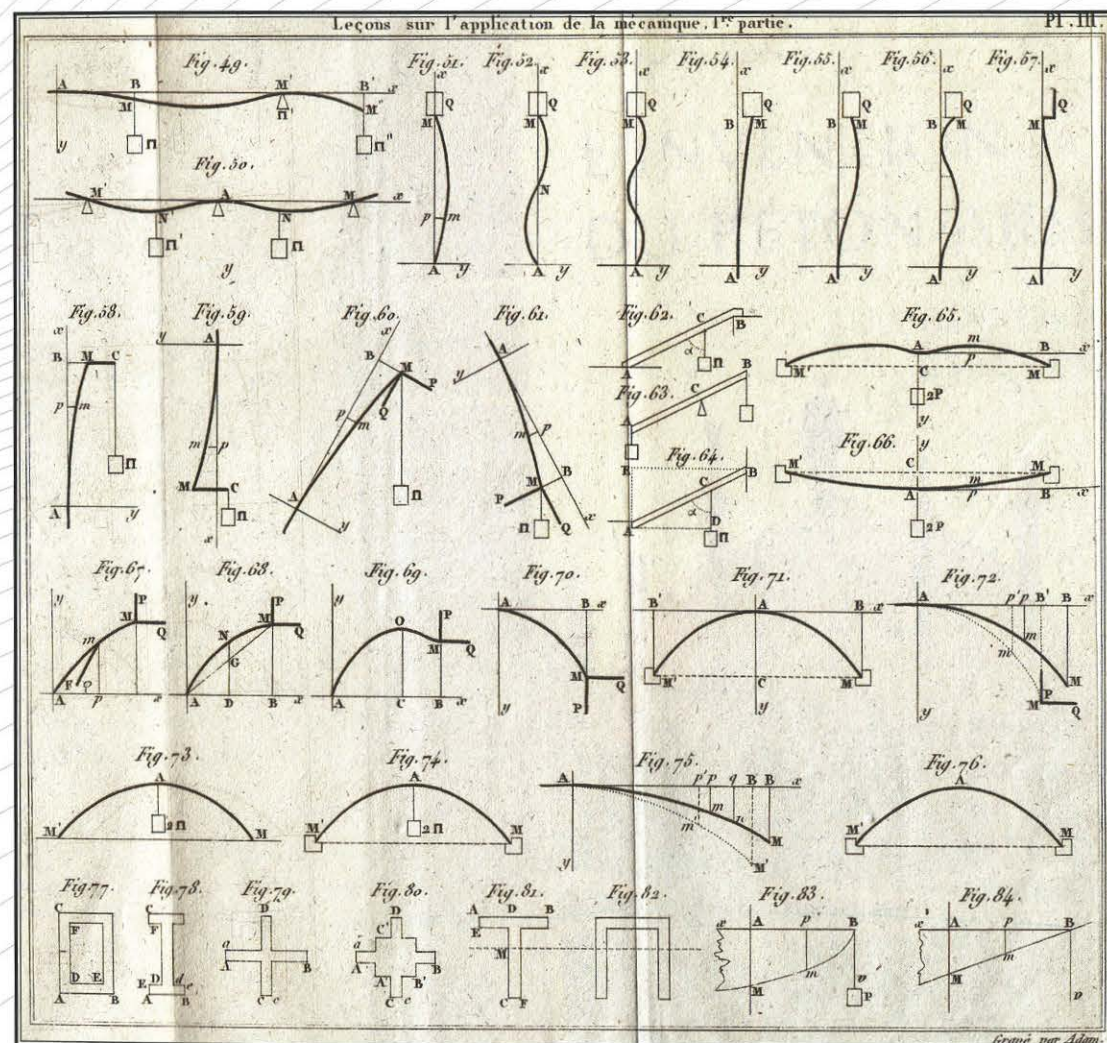 Leçons sur l'application de la mécanique, 1re partie.
Pl. III.
Fig. 49.
A B M' B' x
M Π' M"
y Π Π"
Fig. 50.
M' A M x
N' N
Π' Π
y
Fig. 51.
x
Q
M
p m
A y
Fig. 52.
x
Q
M
N
A y
Fig. 53.
x
Q
M
A y
Fig. 54.
x
Q
B M
A y
Fig. 55.
x
Q
B M
A y
Fig. 56.
x
Q
B M
A y
Fig. 57.
x
Q
M
A y
Fig. 58.
x
B M C
p m
Π
A y
Fig. 59.
y A
m p
M C
Π
x
Fig. 60.
x
B M
P
Q
p m
Π
A
y
Fig. 61.
A
y
m p
M B
P
Π Q x
Fig. 62.
C
B
α
A Π
Fig. 63.
B
C
A
Fig. 64.
B B
C
α
D
A Π
Fig. 65.
A m B x
M' C p M
2P
y
Fig. 66.
y
M' C M
m
A p B x
2P
Fig. 67.
y P
M
m Q
F φ
A p x
Fig. 68.
y P
N M
Q
G
A D B x
Fig. 69.
y P
O
M Q
A C B x
Fig. 70.
A B x
M Q
y P
Fig. 71.
B' A B x
M' C M
y
Fig. 72.
A p' p B' B x
m
m' M
P
M' Q
y
Fig. 73.
A
2Π
M' M
Fig. 74.
A
2Π
M' M
Fig. 75.
A p' p q B B x
m
m' n
M
y M'
Fig. 76.
A
M' M
Fig. 77.
C
F
D E
A B
Fig. 78.
C
F
E D d
e
A B
Fig. 79.
D
a
A B
C c
Fig. 80.
D
C'
a
A B
A' B'
C c
Fig. 81.
A D B
E
M
C F
Fig. 82.
Fig. 83.
x A p B
m
M p
P
Fig. 84.
x' A p B
m
M
p
Gravé par Adam.